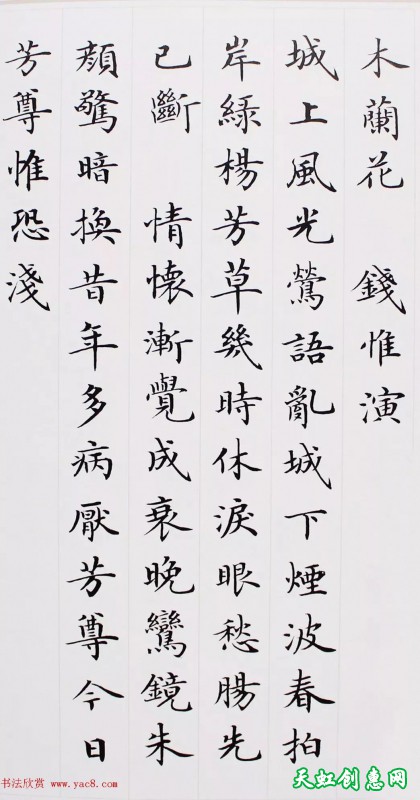 木蘭花 錢惟演
城上風光鶯語亂城下煙波春拍
岸綠楊芳草幾時休淚眼愁腸先
已斷 情懷漸覺成衰晚鸞鏡朱
顏驚暗換昔年多病厭芳尊今日
芳尊惟恐淺
书法欣赏 www.yac8.com
天虹创意网